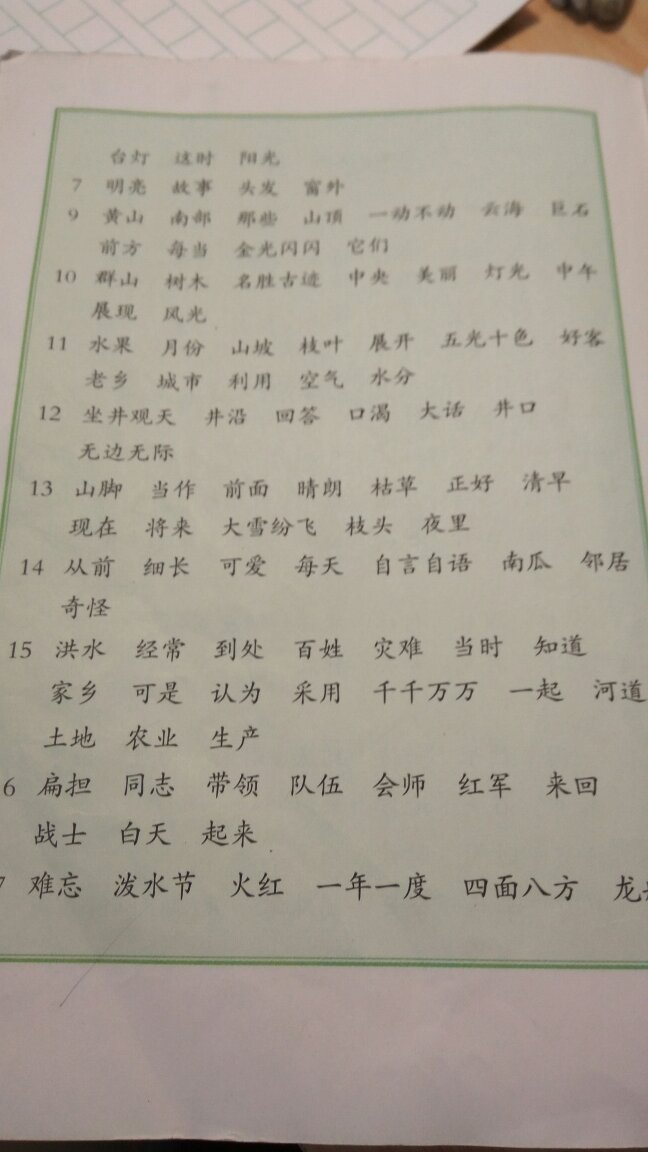 台灯 这时 阳光
7 明亮 故事 头发 窗外
9 黄山 南部 那些 山顶 一动不动 云海 巨石
前方 每当 金光闪闪 它们
10 群山 树木 名胜古迹 中央 美丽 灯光 中午
展现 风光
11 水果 月份 山坡 枝叶 展开 五光十色 好客
老乡 城市 利用 空气 水分
12 坐井观天 井沿 回答 口渴 大话 井口
无边无际
13 山脚 当作 前面 晴朗 枯草 正好 清早
现在 将来 大雪纷飞 枝头 夜里
14 从前 细长 可爱 每天 自言自语 南瓜 邻居
奇怪
15 洪水 经常 到处 百姓 灾难 当时 知道
家乡 可是 认为 采用 千千万万 一起 河道
土地 农业 生产
6 扁担 同志 带领 队伍 会师 红军 来回
战士 白天 起来
7 难忘 泼水节 火红 一年一度 四面八方 龙